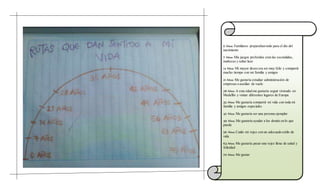 RUTAS QUE DAN SENTIDO A MI
VIDA
35 AÑOS
28 AÑOS
42 AÑOS
21 AÑOS
49 AÑOS
14 AÑOS
56 AÑOS
7 AÑOS
63 AÑOS
0 AÑOS
70 AÑOS
0 Años Familiares preparados todo para el día del
nacimiento
7 Años Mis juegos preferidos eran las escondidas,
muñecas y saltar lazo
14 Años Mi mayor deseo era ser muy feliz y compartir
mucho tiempo con mi familia y amigos
21 Años Me gustaría estudiar administración de
empresas o auxiliar de vuelo
28 Años A esta edad me gustaría seguir viviendo en
Medellín y visitar diferentes lugares de Europa
35 Años Me gustaría compartir mi vida con toda mi
familia y amigos especiales
42 Años Me gustaría ser una persona ejemplar
49 Años Me gustaría ayudar a los demás en lo que
pueda
56 Años Cuido mi vejez con un adecuado estilo de
vida
63 Años Me gustaría pasar una vejez llena de salud y
felicidad
70 Años Me gustar